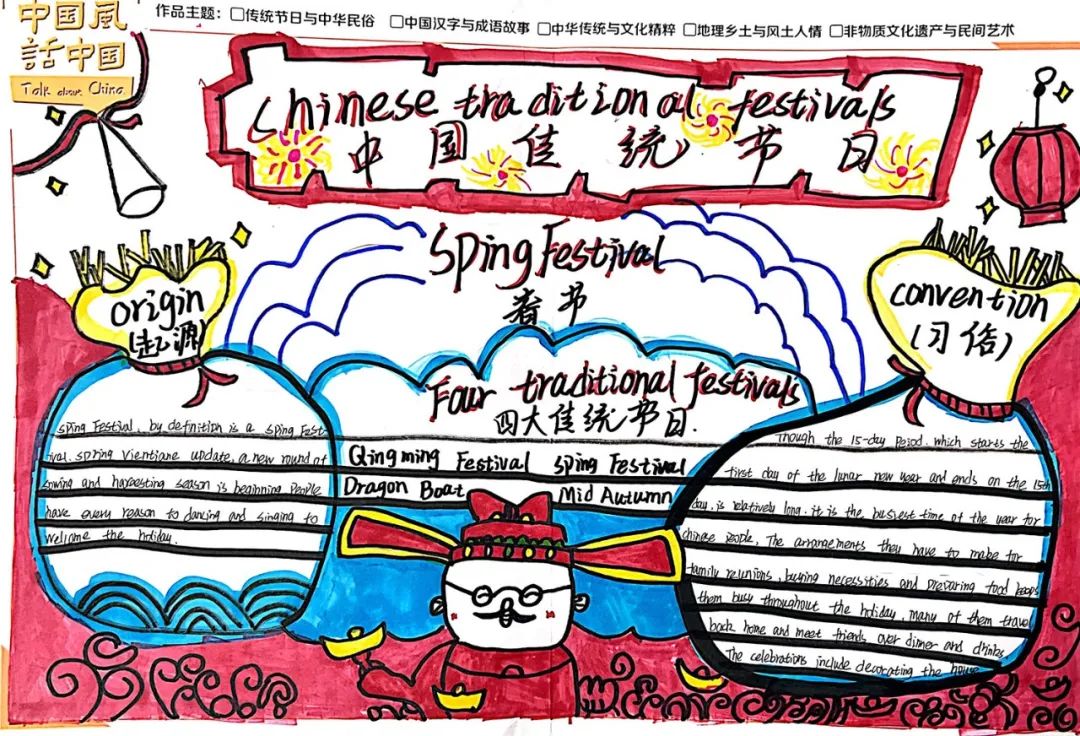 中国風
話中国
Talk about China
作品主题：□传统节日与中华民俗 □中国汉字与成语故事 □中华传统与文化精粹 □地理乡土与风土人情 □非物质文化遗产与民间艺术
Chinese traditional festivals
中国佳统节日
Sping Festival
春节
Four traditional festivals
四大佳统节日.
Qingming Festival sping Festival
Dragon Boat Mid Autumn
origin
(起源)
sping Festival, by definition is a sping Fest-
ival. spring Vientiane update, a new round of
sowing and harvesting season is beginning People
have every reason to dancing and singing to
welcome the holiday.
convention
(习俗)
Though the 15-day period. which starts the
first day of the lunar new year and ends on the 15th
day, is relatively long. it is the busiest time of the year for
chinese people, The arrangements they have to make for
family reunions, buying necessities and preparing food keeps
them busy throughout the holiday, many of them travel
back home and meet friends over dinner and drinks
The celebrations include decorating the house